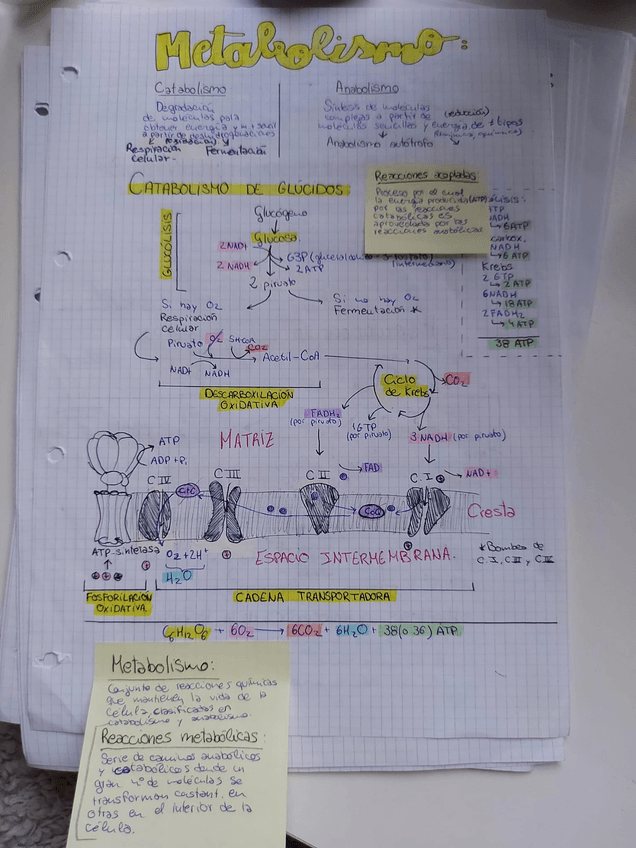 Metabolismo:
Catabolismo
Degradación
de moléculas para
obtener energía y
a partir de
Respiración
celular-
Fermentación
Anabolismo
Síntesis de moléculas
complejas a partir de (reducción)
moléculas sencillas y energía de ≠ tipos
Anabolismo autótrofo
Reacciones acopladas
Proceso por el cual
la energía producida (ATP)
por las reacciones
catabólicas es
aprovechada por las
reacciones anabólicas
CATABOLISMO DE GLÚCIDOS
GLUCÓLISIS
Glucógeno
Glucosa
2 NAD+
2 NADH
G3P
2 ATP
(intermediario)
2 piruvato
Si hay O2
Respiración
celular
Si no hay O2
Fermentación *
ATP
NADH
6ATP
NADH
6 ATP
Krebs
2 GTP
2 ATP
6NADH
18 ATP
2 FADH2
4 ATP
38 ATP
Piruvato
SHCoA
CO2
Acetil-CoA
NAD+
NADH
DESCARBOXILACIÓN
OXIDATIVA
Ciclo
de Krebs
CO2
FADH2
(por piruvato)
1GTP
(por piruvato)
3 NADH (por piruvato)
MATRIZ
ATP
ADP + Pi
FAD
NAD+
C IV
C III
C II
C. I
CitC
CoQ
Cresta
ATP-sintetasa
O2 + 2H+
H2O
ESPACIO INTERMEMBRANA.
*Bombas de
C. I, C III y C IV
FOSFORILACIÓN
OXIDATIVA.
CADENA TRANSPORTADORA
C6H12O6 + 6O2 → 6CO2 + 6H2O + 38(o 36) ATP.
Metabolismo:
Conjunto de reacciones químicas
que mantienen la vida de la
célula, clasificadas en
catabolismo y anabolismo.
Reacciones metabólicas:
Serie de caminos anabólicos
y catabólicos donde un
gran nº de moléculas se
transforman constant. en
otras en el interior de la
célula.